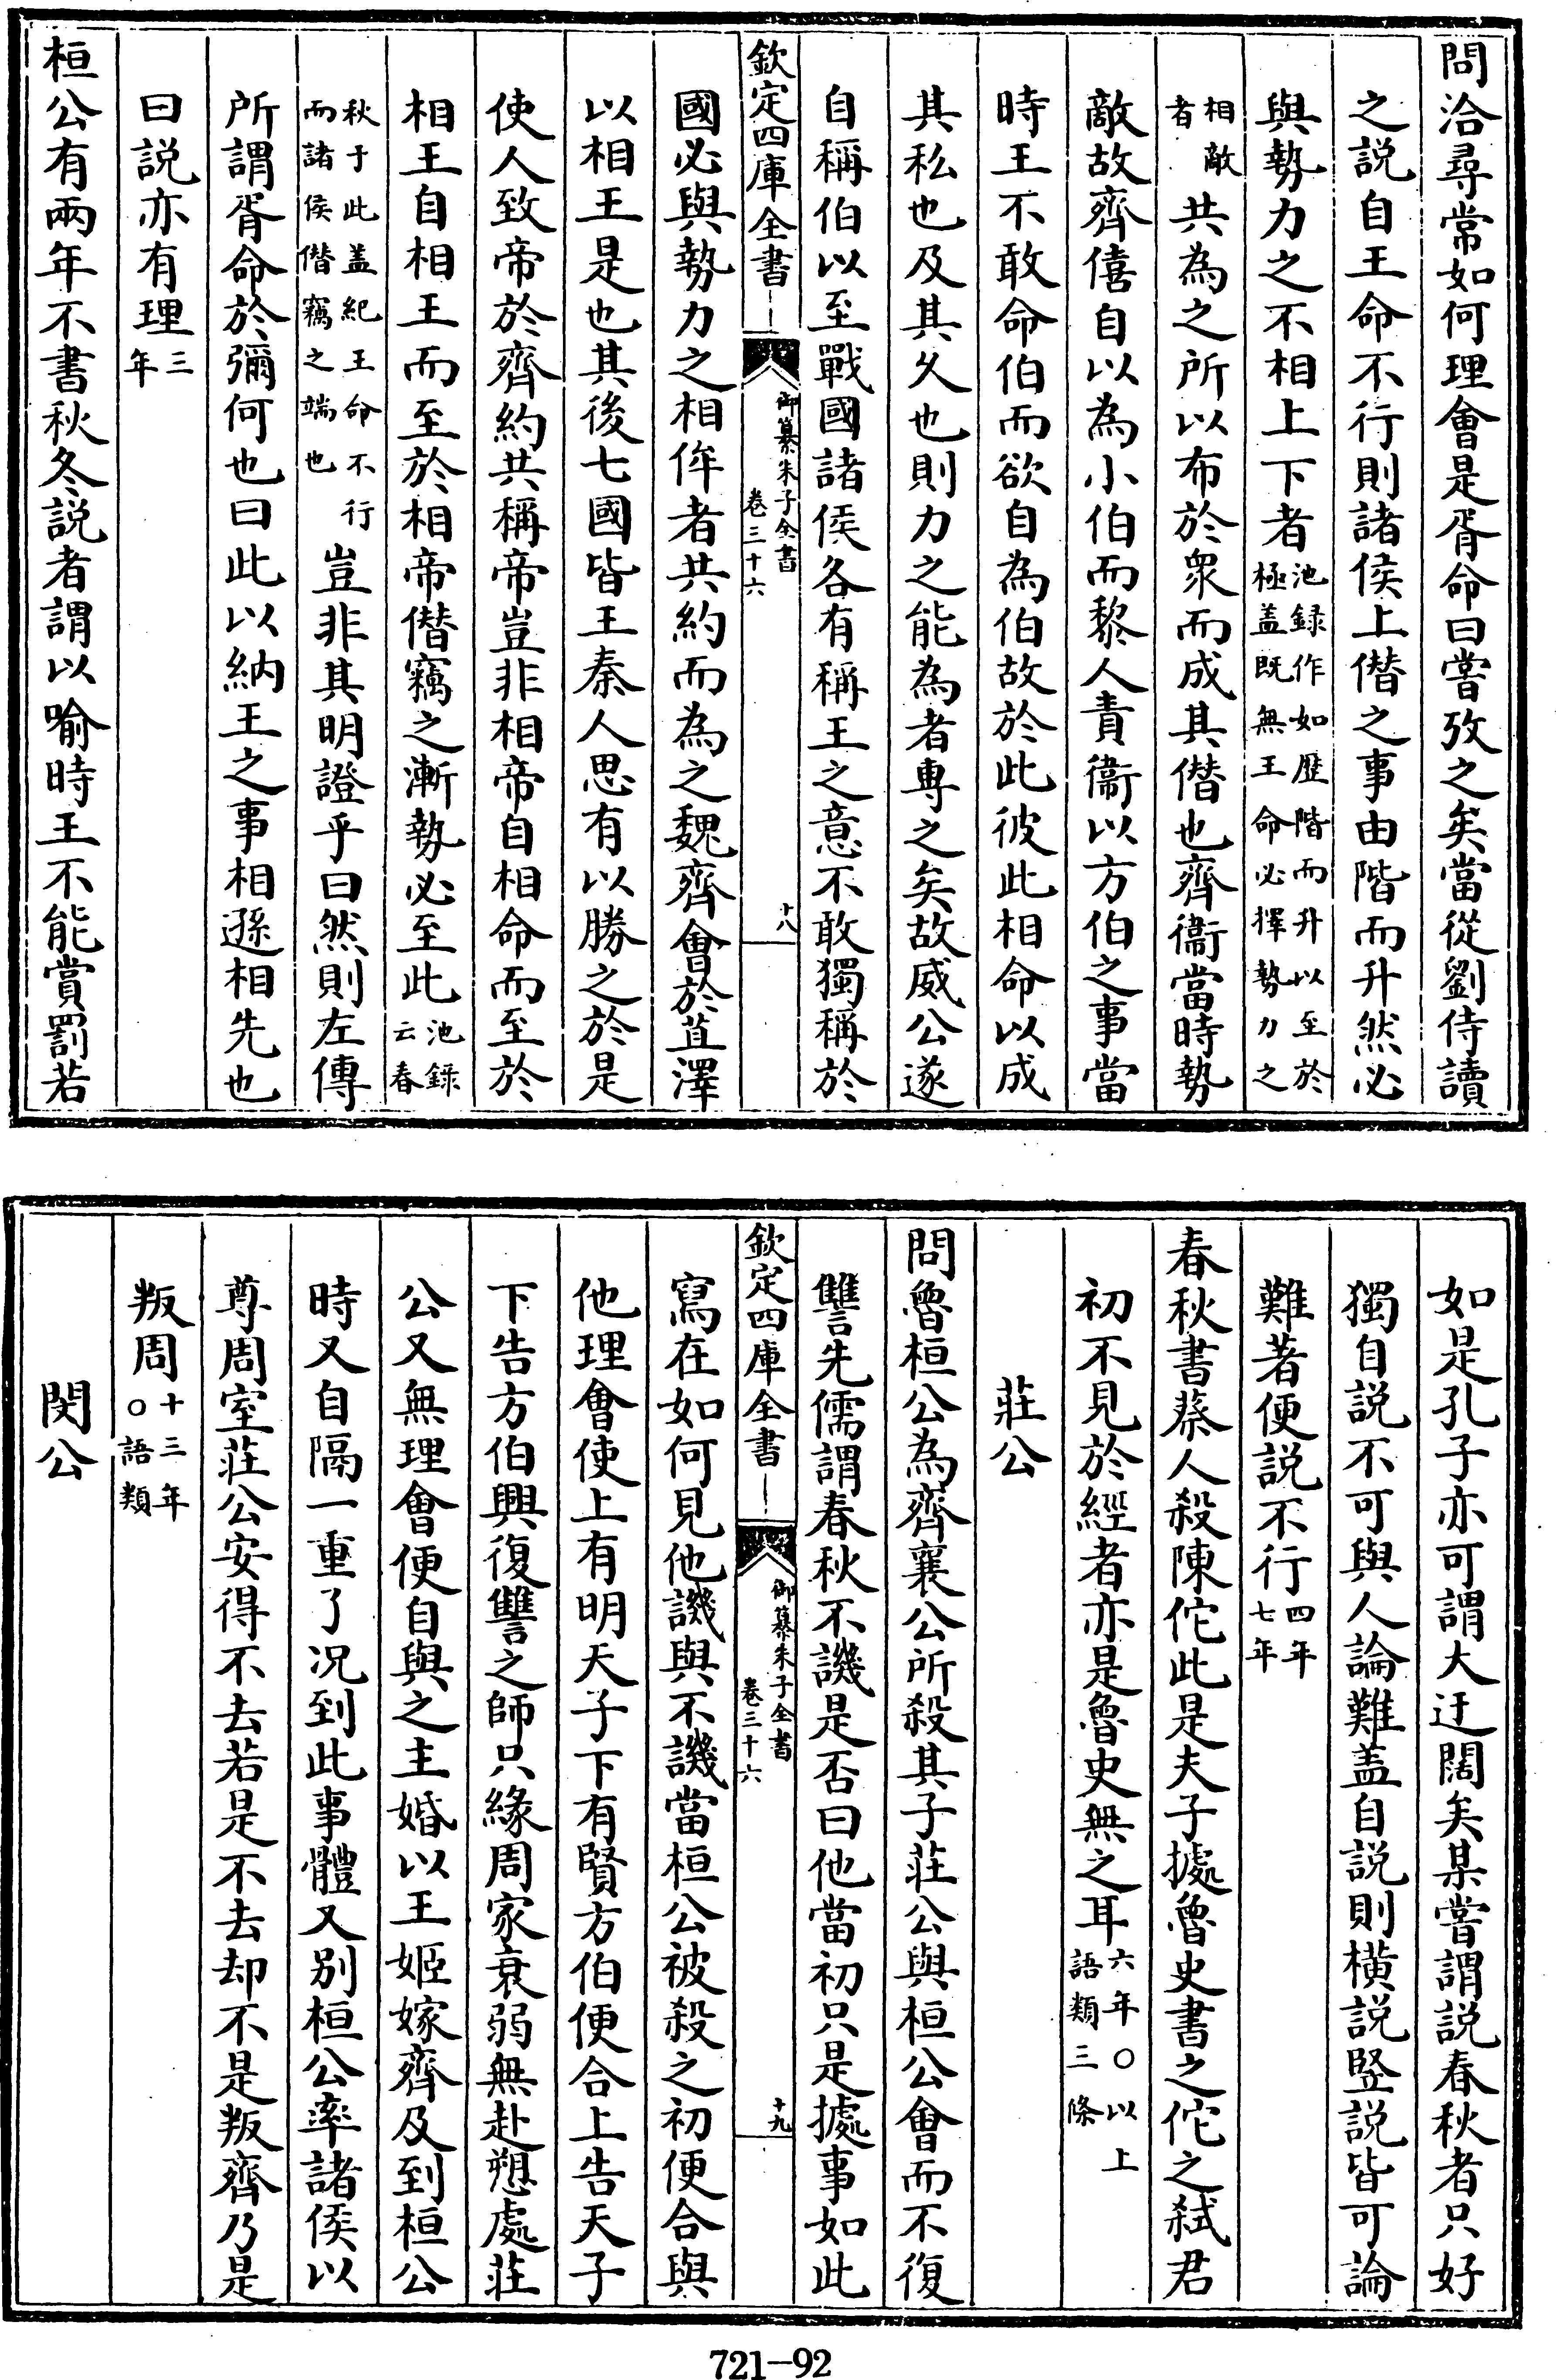 問洽尋常如何理會是胥命曰嘗攷之矣當從劉侍讀
之説自王命不行則諸侯上僭之事由階而升然必
與勢力之不相上下者池録作如歴階而升以至於極盖既無王命必擇勢力之
相敵者共為之所以布於衆而成其僭也齊衞當時勢
敵故齊僖自以為小伯而黎人責衞以方伯之事當
時王不敢命伯而欲自為伯故於此彼此相命以成
其私也及其久也則力之能為者專之矣故威公遂
自稱伯以至戰國諸侯各有稱王之意不敢獨稱於
欽定四庫全書 御纂朱子全書 卷三十六 十八
國必與勢力之相侔者共約而為之魏齊會於苴澤
以相王是也其後七國皆王秦人思有以勝之於是
使人致帝於齊約共稱帝豈非相帝自相命而至於
相王自相王而至於相帝僭竊之漸勢必至此池錄云春
秋于此盖紀王命不行而諸侯僭竊之端也豈非其明證乎曰然則左傳
所謂胥命於彌何也曰此以納王之事相遜相先也
曰説亦有理三年
桓公有兩年不書秋冬説者謂以喻時王不能賞罰若
如是孔子亦可謂大迂闊矣某嘗謂説春秋者只好
獨自説不可與人論難盖自説則橫説竪説皆可論
難著便説不行四年七年
春秋書蔡人殺陳佗此是夫子據魯史書之佗之弑君
初不見於經者亦是魯史無之耳六年○以上語類三條
莊公
問魯桓公為齊襄公所殺其子莊公與桓公會而不復
讐先儒謂春秋不譏是否曰他當初只是據事如此
欽定四庫全書 御纂朱子全書 卷三十六 十九
寫在如何見他譏與不譏當桓公被殺之初便合與
他理會使上有明天子下有賢方伯便合上告天子
下告方伯興復讐之師只緣周家衰弱無赴愬處莊
公又無理會便自與之主婚以王姬嫁齊及到桓公
時又自隔一重了况到此事體又别桓公率諸侯以
尊周室莊公安得不去若是不去却不是叛齊乃是
叛周十三年○語類
閔公
721-92